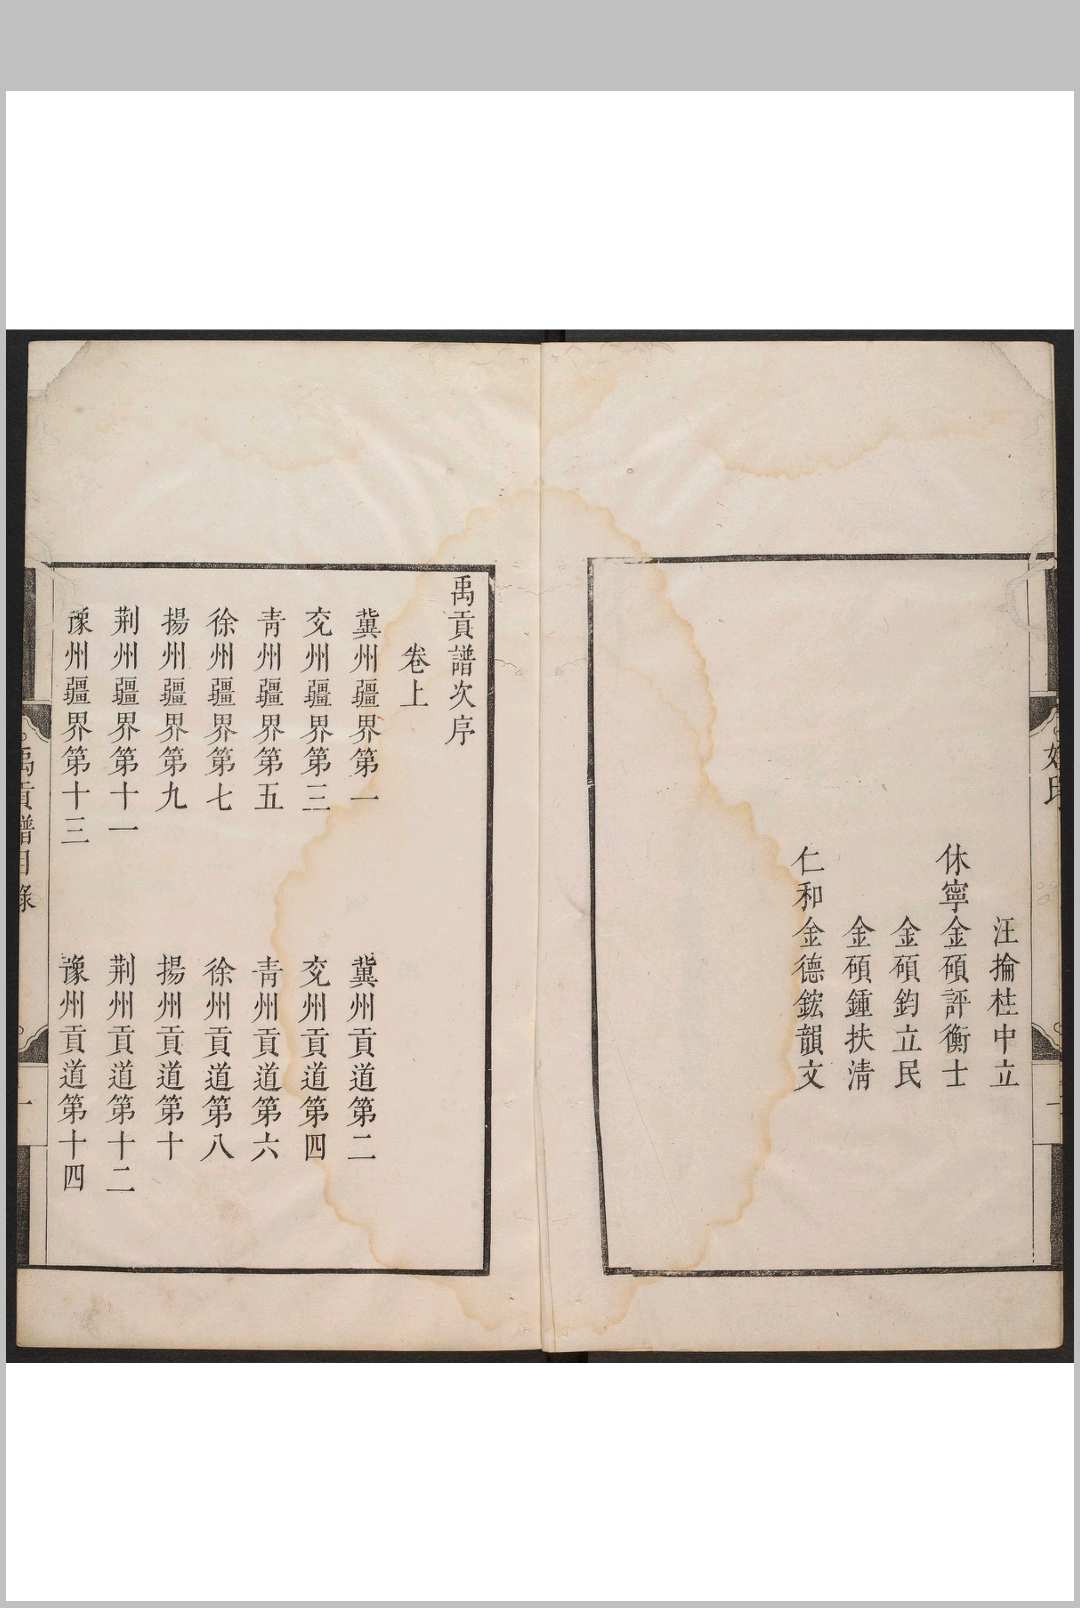 汪掄桂中立
休寧金碩評衡士
金碩鈞立民
金碩鍾扶淸
仁和金德鋐韻文
禹貢譜次序
卷上
冀州疆界第一
冀州貢道第二
兗州疆界第三
兗州貢道第四
靑州疆界第五
靑州貢道第六
徐州疆界第七
徐州貢道第八
揚州疆界第九
揚州貢道第十
荆州疆界第十一
荆州貢道第十二
豫州疆界第十三
豫州貢道第十四
禹貢譜目錄
一